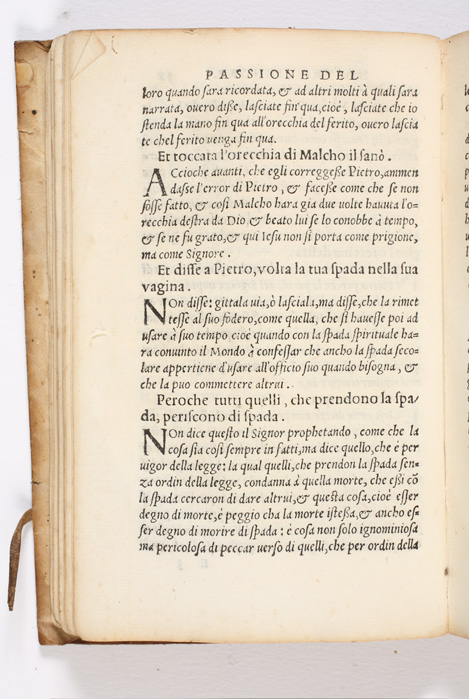 PASSIONE DEL
loro quando sara ricordata, & ad altri molti à quali sara
narrata, ouero disse, lasciate fin qua, cioè, lasciate che io
stenda la mano fin qua all'orecchia del ferito, ouero lascia
te chel ferito uenga fin qua.
Et toccata l'orecchia di Malcho il sanò.
ACcioche auanti, che egli correggesse Pietro, ammen
dasse l'error di Pietro, & facesse come che se non
fosse fatto, & cosi Malcho hara gia due uolte hauuta l'o-
recchia destra da Dio & beato lui se lo conobbe à tempo,
& se ne fu grato, & qui Iesu non si porta come prigione,
ma come Signore.
Et disse a Pietro, volta la tua spada nella sua
vagina.
NOn disse: gittala uia, ò lasciala, ma disse, che la rimet
tesse al suo fodero, come quella, che si hauesse poi ad
usare à suo tempo cioè quando con la spada spirituale ha-
ra conuinto il Mondo à confessar che ancho la spada seco-
lare appertiene d'usare all'officio suo quando bisogna, &
che la puo commettere altrui.
Peroche tutti quelli, che prendono la spa-
da, periscono di spada.
NOn dice questo il Signor prophetando, come che la
cosa sia cosi sempre in fatti, ma dice quello, che è per
uigor della legge; la qual quelli, che prendon la spada sen-
za ordin della legge, condanna à quella morte, che essi cō
la spada cercaron di dare altrui, & questa cosa, cioè esser
degno di morte, è peggio cha la morte istessa, & ancho es-
ser degno di morire di spada: è cosa non solo ignominiosa
ma pericolosa di peccar uerso di quelli, che per ordin della